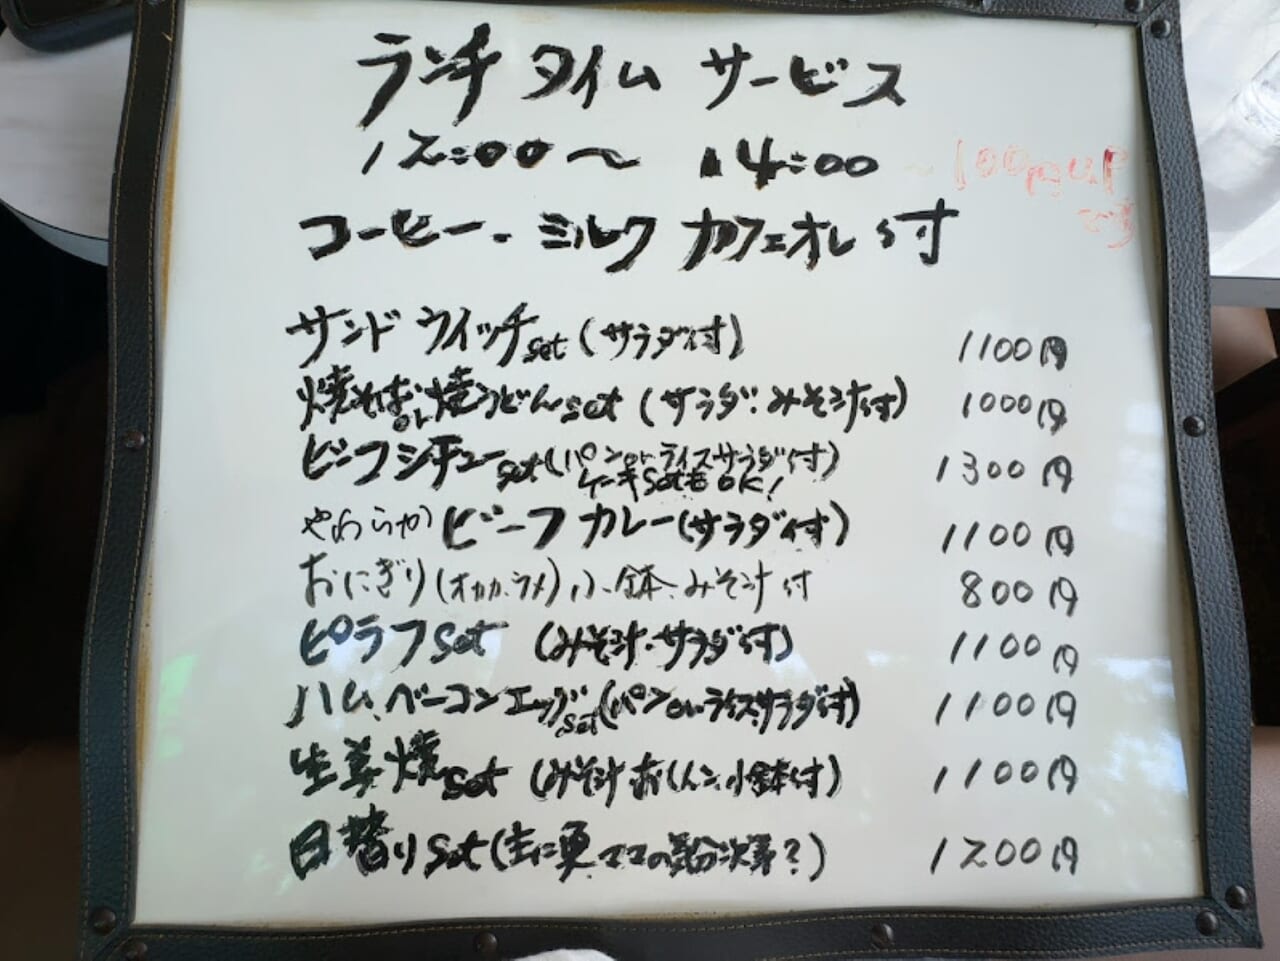 ランチ タイム サービス
12:00〜 14:00
100円UP
です
コーヒー.ミルク カフェオレ付
サンドウイッチset(サラダ付) 1100円
焼そばor焼うどんset(サラダ.みそ汁付) 1000円
ビーフシチューset(パンorライスサラダ付) 1300円
ケーキsetもOK!
やわらかビーフカレー(サラダ付) 1100円
おにぎり(オカカ.ウメ)小鉢.みそ汁付 800円
ピラフset (みそ汁.サラダ付) 1100円
ハム、ベーコンエッグset(パンorライスサラダ付) 1100円
生姜焼set (みそ汁.おしんこ.小鉢付) 1100円
日替りset(主に夏.ママの気分次第?) 1200円